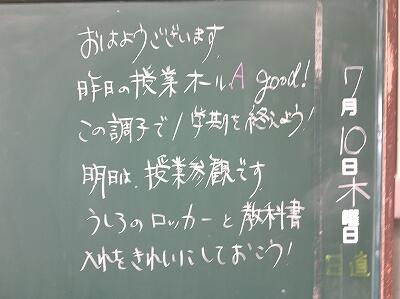 おはようございます。
昨日の授業オールA good!
この調子で1学期を終えよう!
明日は、授業参観です。
うしろのロッカーと教科書
入れをきれいにしておこう!
7月10日木曜日
日直